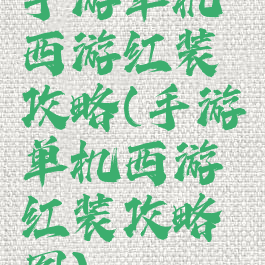 手游单机
西游红装
攻略(手游
单机西游
红装攻略
图)